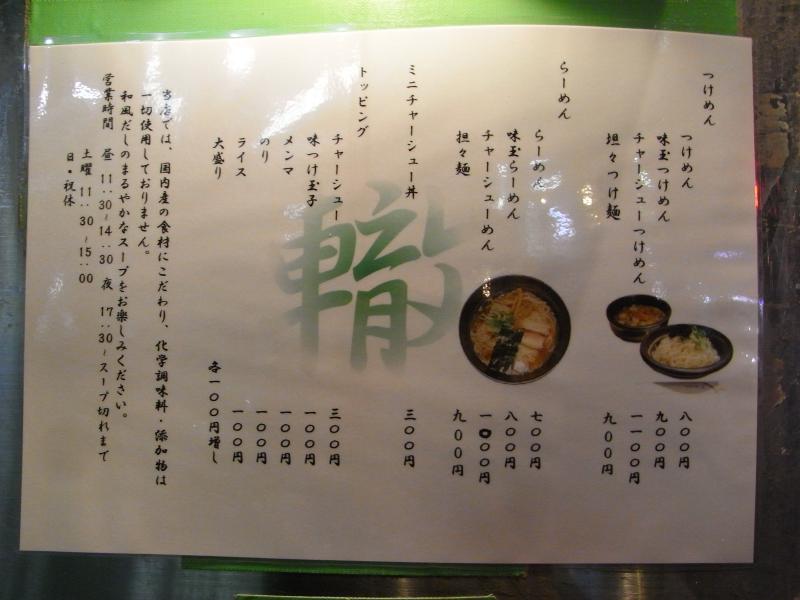 つけめん
つけめん 八〇〇円
味玉つけめん 九〇〇円
チャーシューつけめん 一一〇〇円
坦々つけ麺 九００円
らーめん
らーめん 七〇〇円
味玉らーめん 八〇〇円
チャーシューめん 一〇〇〇円
担々麺 九００円
ミニチャーシュー丼 三〇〇円
トッピング
チャーシュー 三〇〇円
味つけ玉子 一〇〇円
メンマ 一〇〇円
のり 一〇〇円
ライス 一〇〇円
大盛り 各一〇〇円増し
当店では、国内産の食材にこだわり、化学調味料・添加物は
一切使用しておりません。
和風だしのまるやかなスープをお楽しみください。
営業時間 昼 11:30~14:30 夜 17:30~スープ切れまで
土曜 11:30~15:00
日・祝休
轍